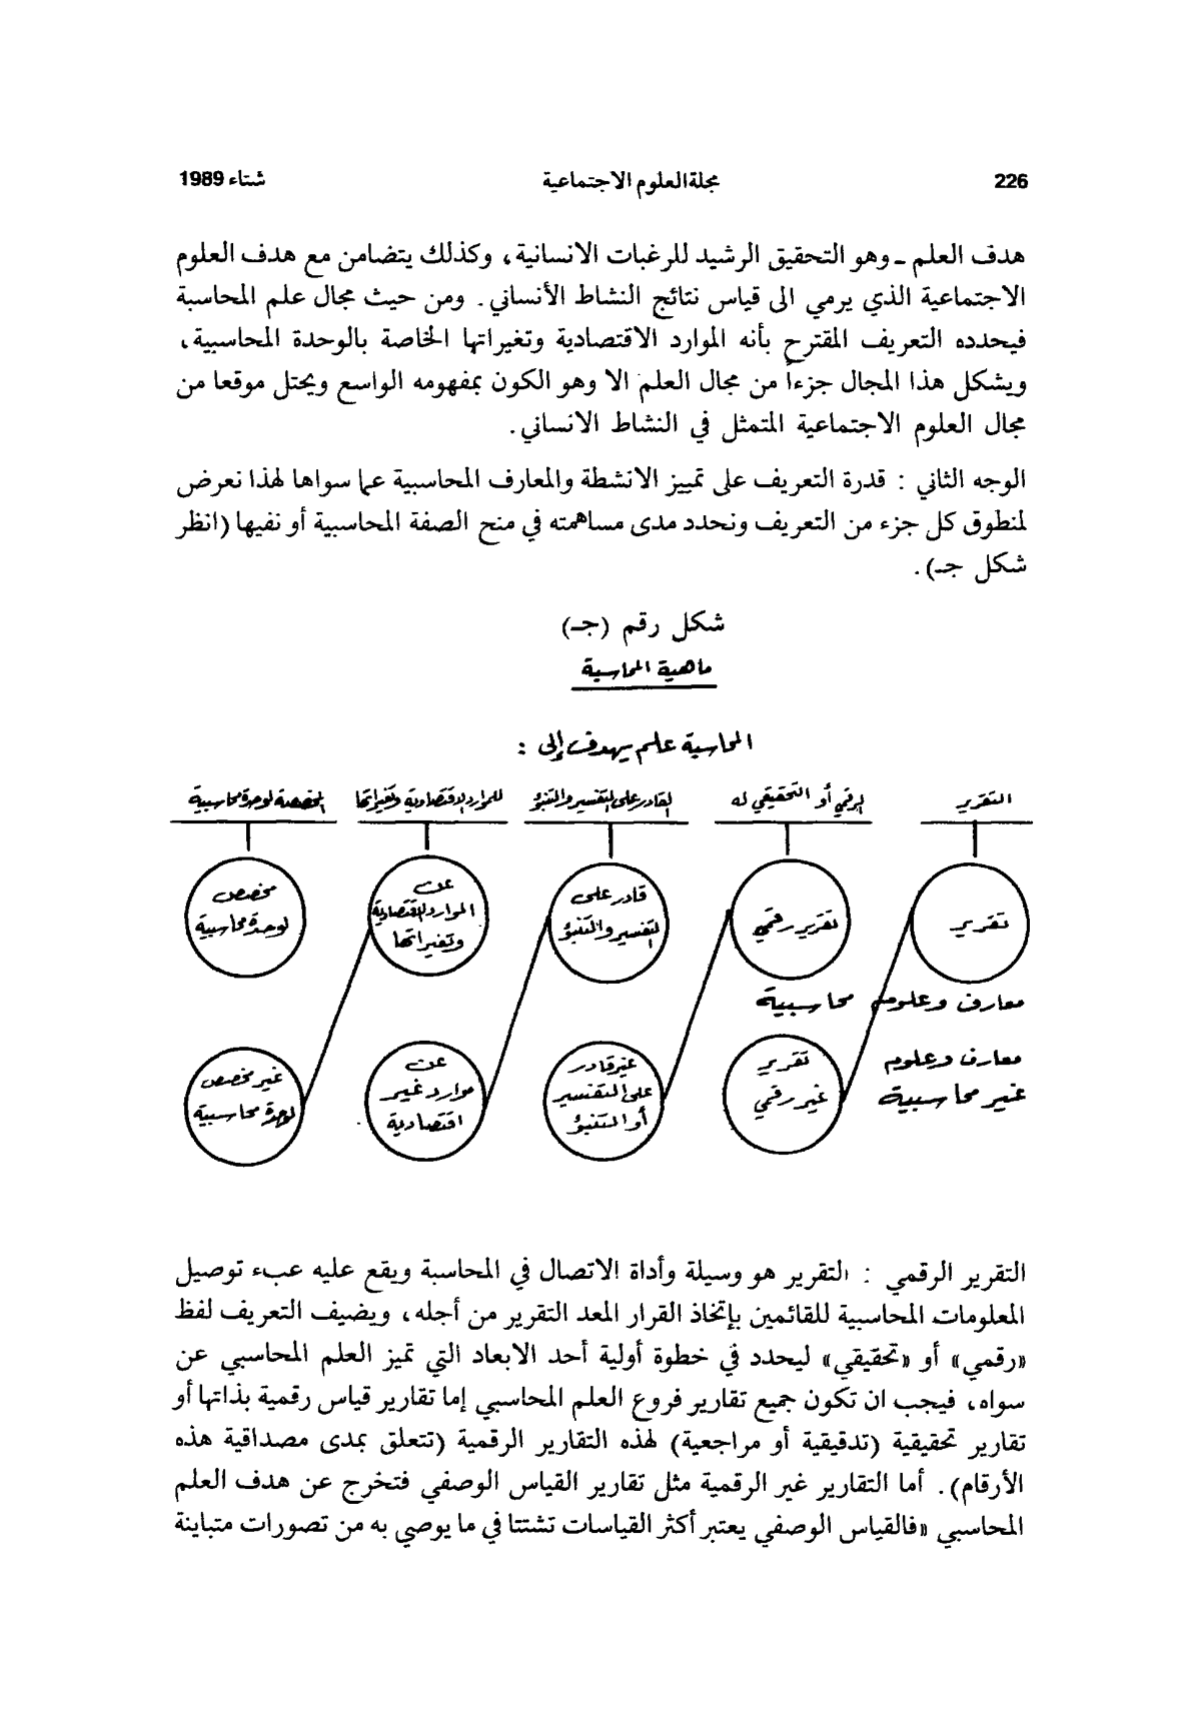 226
مجلة العلوم الاجتماعية
شتاء 1989
هدف العلم ـ وهو التحقيق الرشيد للرغبات الانسانية، وكذلك يتضامن مع هدف العلوم
الاجتماعية الذي يرمي الى قياس نتائج النشاط الأنساني. ومن حيث مجال علم المحاسبة
فيحدده التعريف المقترح بأنه الموارد الاقتصادية وتغيراتها الخاصة بالوحدة المحاسبية،
ويشكل هذا المجال جزءاً من مجال العلم الا وهو الكون بمفهومه الواسع ويحتل موقعا من
مجال العلوم الاجتماعية المتمثل في النشاط الانساني.
الوجه الثاني : قدرة التعريف على تمييز الانشطة والمعارف المحاسبية عما سواها لهذا نعرض
لمنطوق كل جزء من التعريف ونحدد مدى مساهمته في منح الصفة المحاسبية أو نفيها (انظر
شكل جـ).
شكل رقم (جـ)
ماهية المحاسبة
المحاسبة علم يهدف إلى :
التقرير
الرقمي أو التحقيقي له
القادر على التفسير والتنبؤ
للموارد الاقتصادية وتغيراتها
المخصصة لوحدة محاسبية
تقرير
تقرير رقمي
قادر على
التفسير والتنبؤ
عن
الموارد الاقتصادية
وتغيراتها
مخصص
لوحدة محاسبية
معارف وعلوم محاسبية
معارف وعلوم
غير محاسبية
تقرير
غير رقمي
غير قادر
على التفسير
أو التنبؤ
عن
موارد غير
اقتصادية
غير مخصص
لوحدة محاسبية
التقرير الرقمي : التقرير هو وسيلة وأداة الاتصال في المحاسبة ويقع عليه عبء توصيل
المعلومات المحاسبية للقائمين بإتخاذ القرار المعد التقرير من أجله، ويضيف التعريف لفظ
«رقمي» أو «تحقيقي» ليحدد في خطوة أولية أحد الابعاد التي تميز العلم المحاسبي عن
سواه، فيجب ان تكون جميع تقارير فروع العلم المحاسبي إما تقارير قياس رقمية بذاتها أو
تقارير تحقيقية (تدقيقية أو مراجعية) لهذه التقارير الرقمية (تتعلق بمدى مصداقية هذه
الأرقام). أما التقارير غير الرقمية مثل تقارير القياس الوصفي فتخرج عن هدف العلم
المحاسبي «فالقياس الوصفي يعتبر أكثر القياسات تشتتا في ما يوصي به من تصورات متباينة